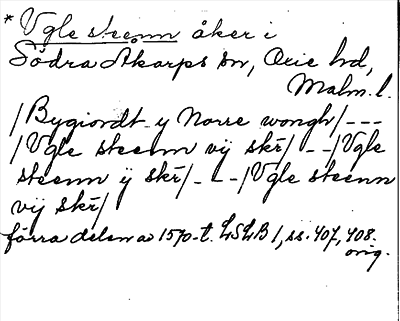 * Vgle steenn åker i
Södra Åkarps sn, Oxie hd,
Malm. l.
/Bygiordt y Norre wongh/---
/Vgle steenn vij skr̄/--/Vgle
steenn ÿ skr̄/---/Vgle steenn
vij skr̄/
förra delen av 1570-t. LSLB 1, ss. 407, 408.
orig.